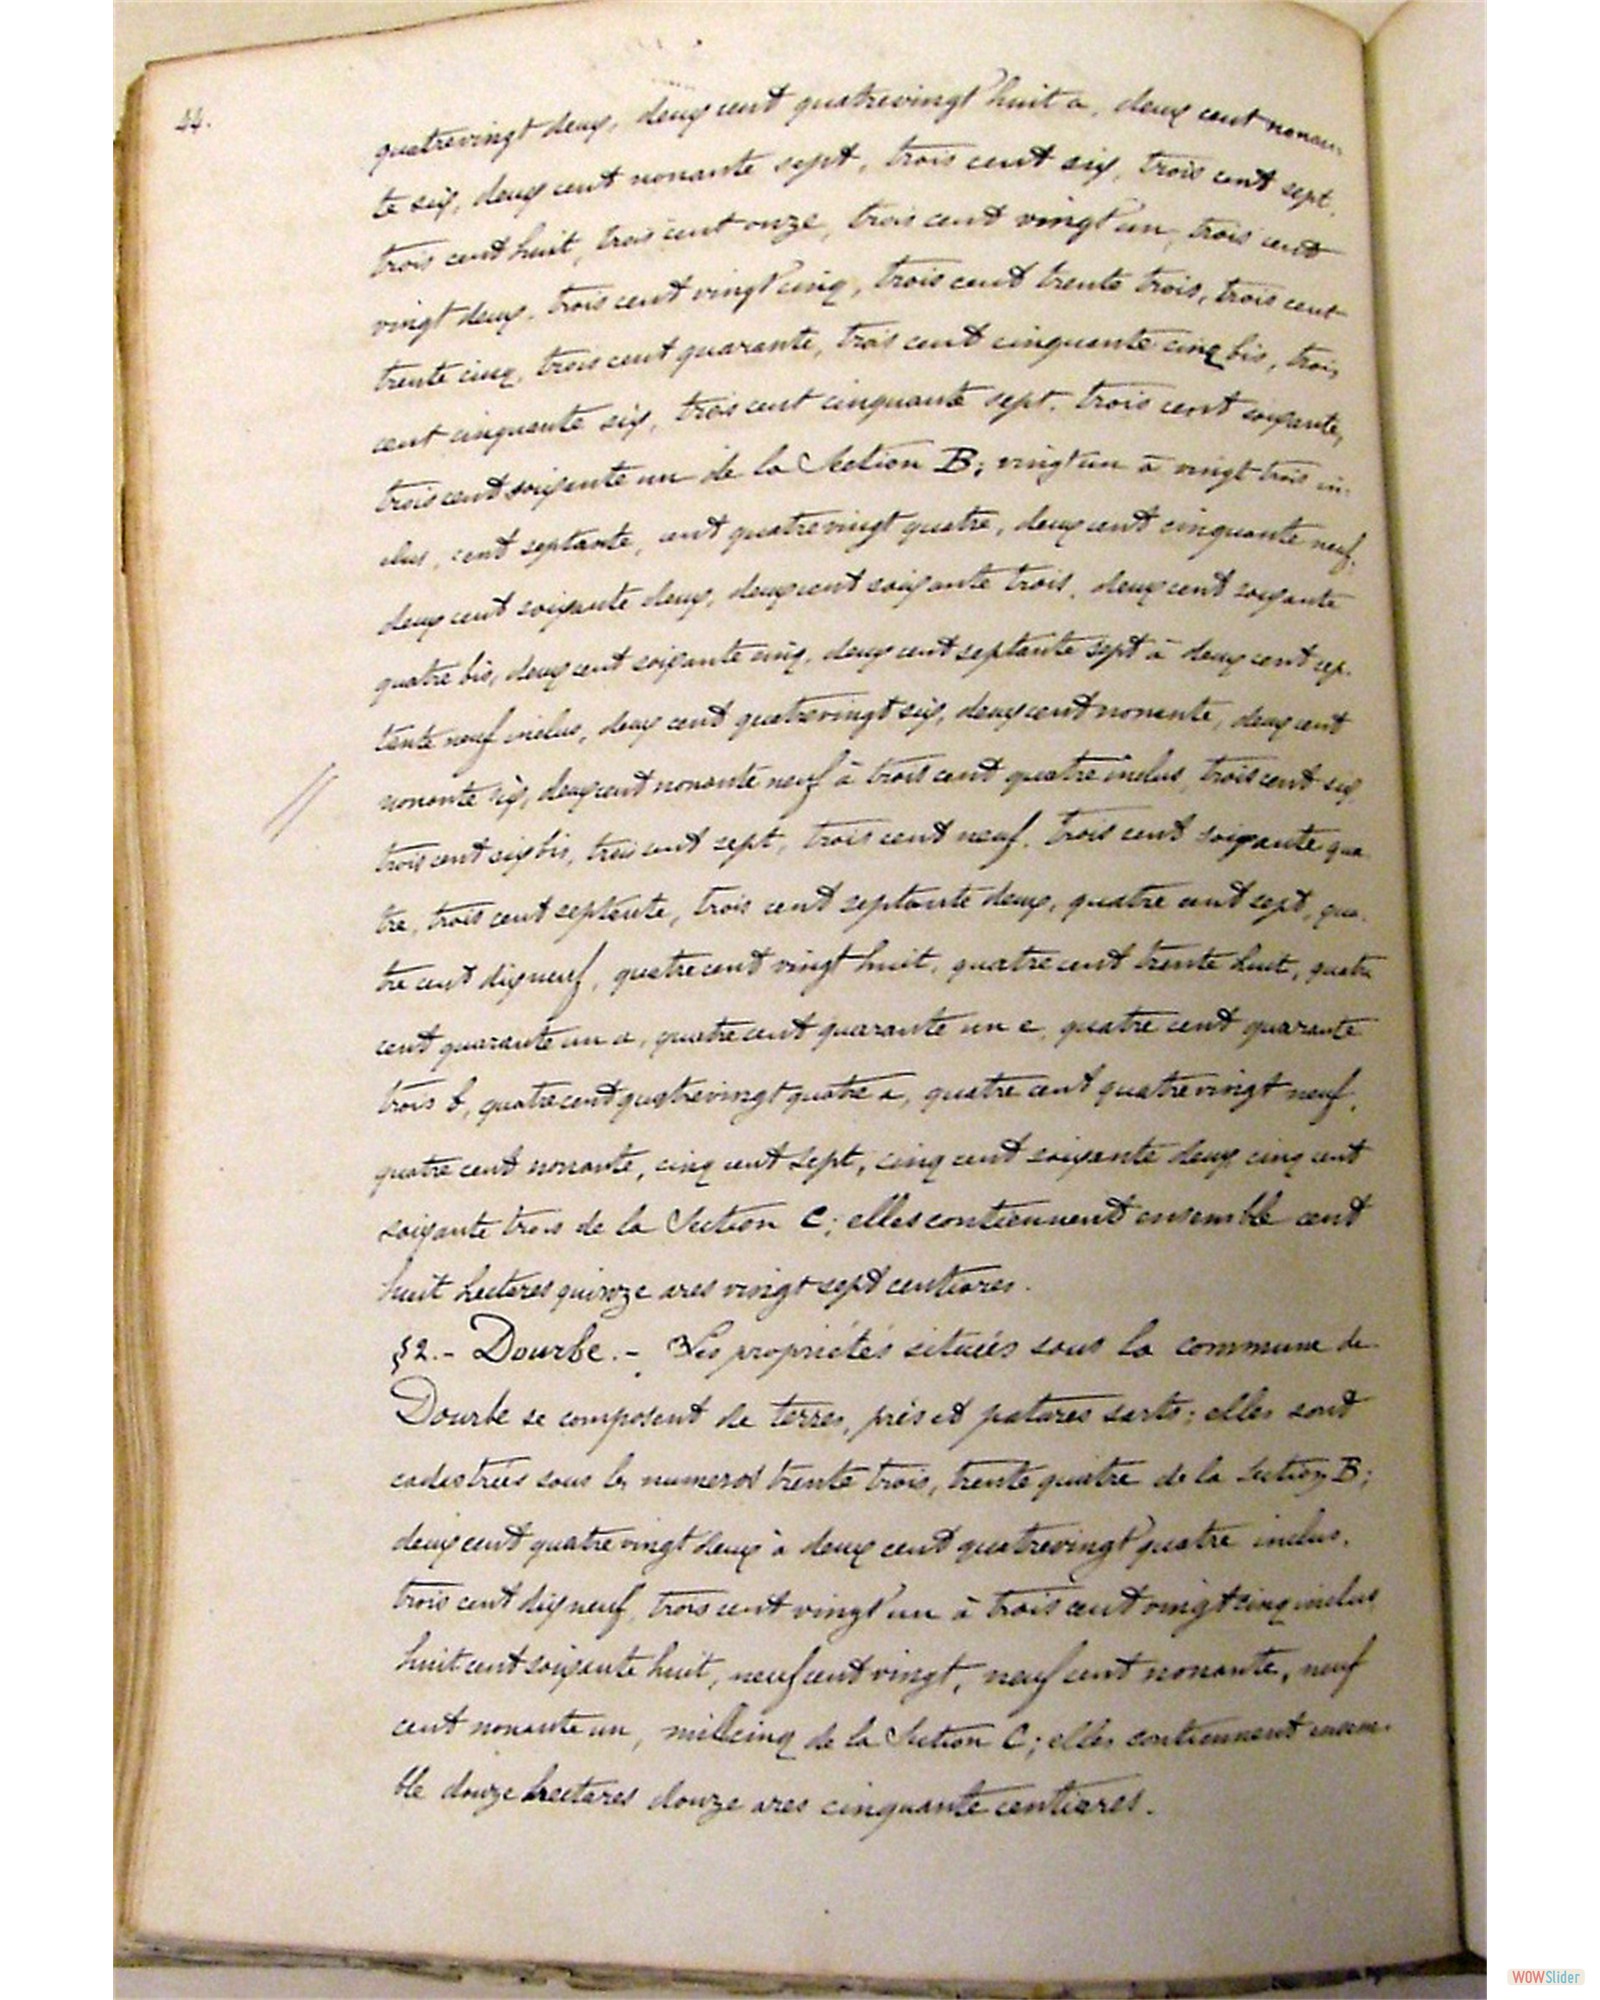 44.
quatrevingt deux, deux cent quatrevingt huit a, deux cent nonan-
te six, deux cent nonante sept, trois cent six, trois cent sept,
trois cent huit, trois cent onze, trois cent vingt un, trois cent
vingt deux, trois cent vingt cinq, trois cent trente trois, trois cent
trente cinq, trois cent quarante, trois cent cinquante cinq bis, trois
cent cinquante six, trois cent cinquante sept, trois cent soixante,
trois cent soixante un de la Section B; vingt un à vingt trois in-
clus, cent septante, cent quatrevingt quatre, deux cent cinquante neuf,
deux cent soixante deux, deux cent soixante trois, deux cent soixante
quatre bis, deux cent soixante cinq, deux cent septante sept à deux cent sep-
tante neuf inclus, deux cent quatrevingt six, deux cent nonante, deux cent
nonante six, deux cent nonante neuf à trois cent quatre inclus, trois cent six,
trois cent six bis, trois cent sept, trois cent neuf, trois cent soixante qua-
tre, trois cent septante, trois cent septante deux, quatre cent sept, qua-
tre cent dix neuf, quatre cent vingt huit, quatre cent trente huit, quatre
cent quarante un a, quatre cent quarante un c, quatre cent quarante
trois b, quatre cent quatrevingt quatre a, quatre cent quatrevingt neuf,
quatre cent nonante, cinq cent sept, cinq cent soixante deux, cinq cent
soixante trois de la Section C; elles contiennent ensemble cent
huit hectares quinze ares vingt sept centiares.
§2.- Dourbe.- Les propriétés situées sous la commune de
Dourbe se composent de terres, prés et patures sarts; elles sont
cadastrées sous les numeros trente trois, trente quatre de la Section B;
deux cent quatre vingt deux à deux cent quatrevingt quatre inclus,
trois cent dix neuf, trois cent vingt un à trois cent vingt cinq inclus
huit cent soixante huit, neuf cent vingt, neuf cent nonante, neuf
cent nonante un, mille cinq de la Section C; elles contiennent ensem-
ble douze hectares douze ares cinquante centiares.
WOWSlider